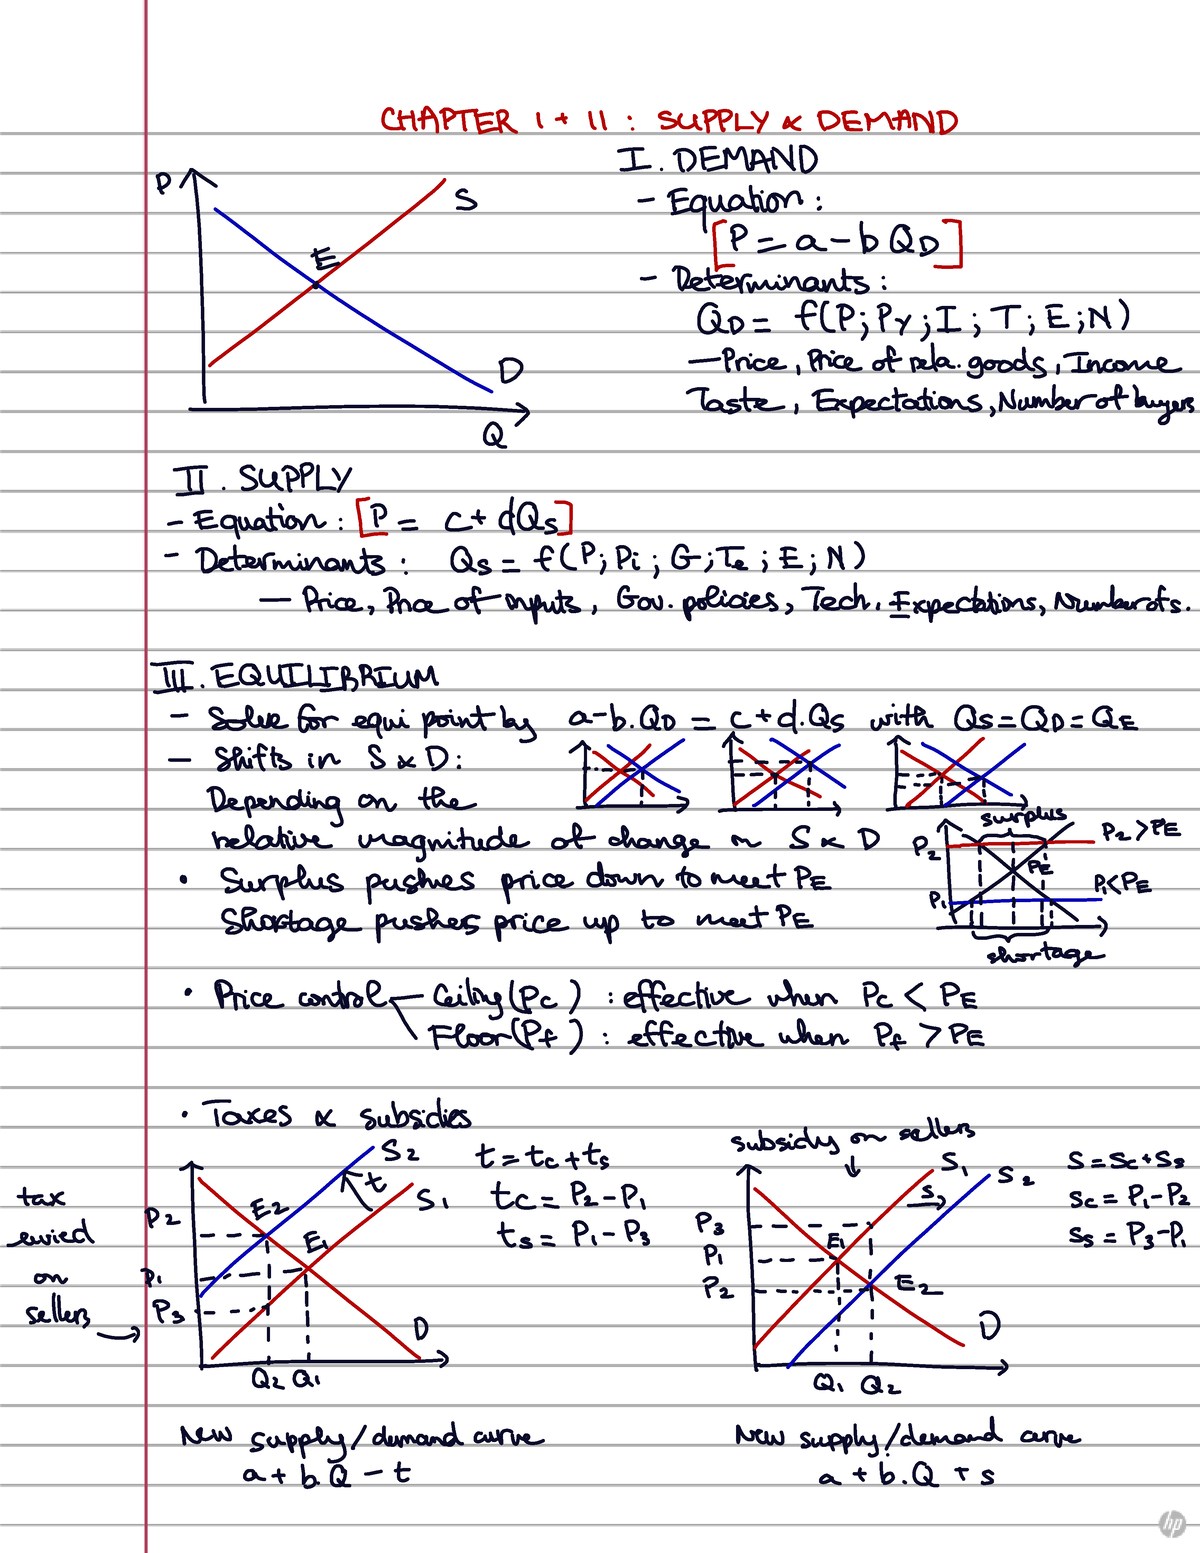 CHAPTER I + II : SUPPLY & DEMAND
P
S
E
D
Q
I. DEMAND
- Equation :
[P = a - b QD]
- Determinants :
QD = f(P; PY; I; T; E; N)
- Price, Price of rela. goods, Income
Taste, Expectations, Number of buyers
II. SUPPLY
- Equation : [P = c + dQs]
- Determinants : Qs = f(P; Pi; G; Te; E; N)
- Price, Price of inputs, Gov. policies, Tech, Expectations, Number of s.
III. EQUILIBRIUM
- Solve for equi point by a-b.QD = c+d.Qs with Qs=QD=QE
- Shifts in S & D:
Depending on the
relative magnitude of change in S & D
• Surplus pushes price down to meet PE
Shortage pushes price up to meet PE
surplus
P2
P2 > PE
PE
P1
P1 < PE
shortage
• Price control - Ceiling (Pc) : effective when Pc < PE
Floor (Pf) : effective when Pf > PE
• Taxes & subsidies
tax
levied
on
sellers
S2
t
S1
E2
E1
P2
P1
P3
D
Q2 Q1
t = tc + ts
tc = P2 - P1
ts = P1 - P3
New supply/demand curve
a + b.Q - t
subsidy on sellers
S1
S
S2
P3
P1
P2
E1
E2
D
Q1 Q2
S = Sc + Ss
Sc = P1 - P2
Ss = P3 - P1
New supply/demand curve
a + b.Q + s
hp